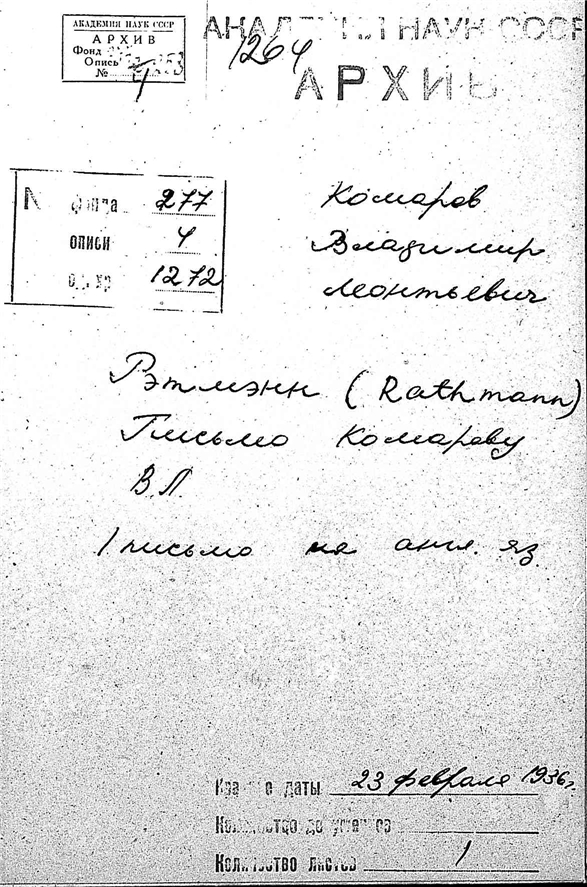 АКАДЕМИЯ НАУК СССР
АРХИВ
Фонд
Опись
№
1264
АКАДЕМИЯ НАУК СССР
АРХИВ
№ фонда 277
описи 4
ед. хр 1272
Комаров
Владимир
Леонтьевич
Рэтмэнн (Rathmann)
Письмо Комарову
В.Л.
1 письмо на англ. яз.
даты 23 февраля 1936 г.
Количество
Количество листов 1